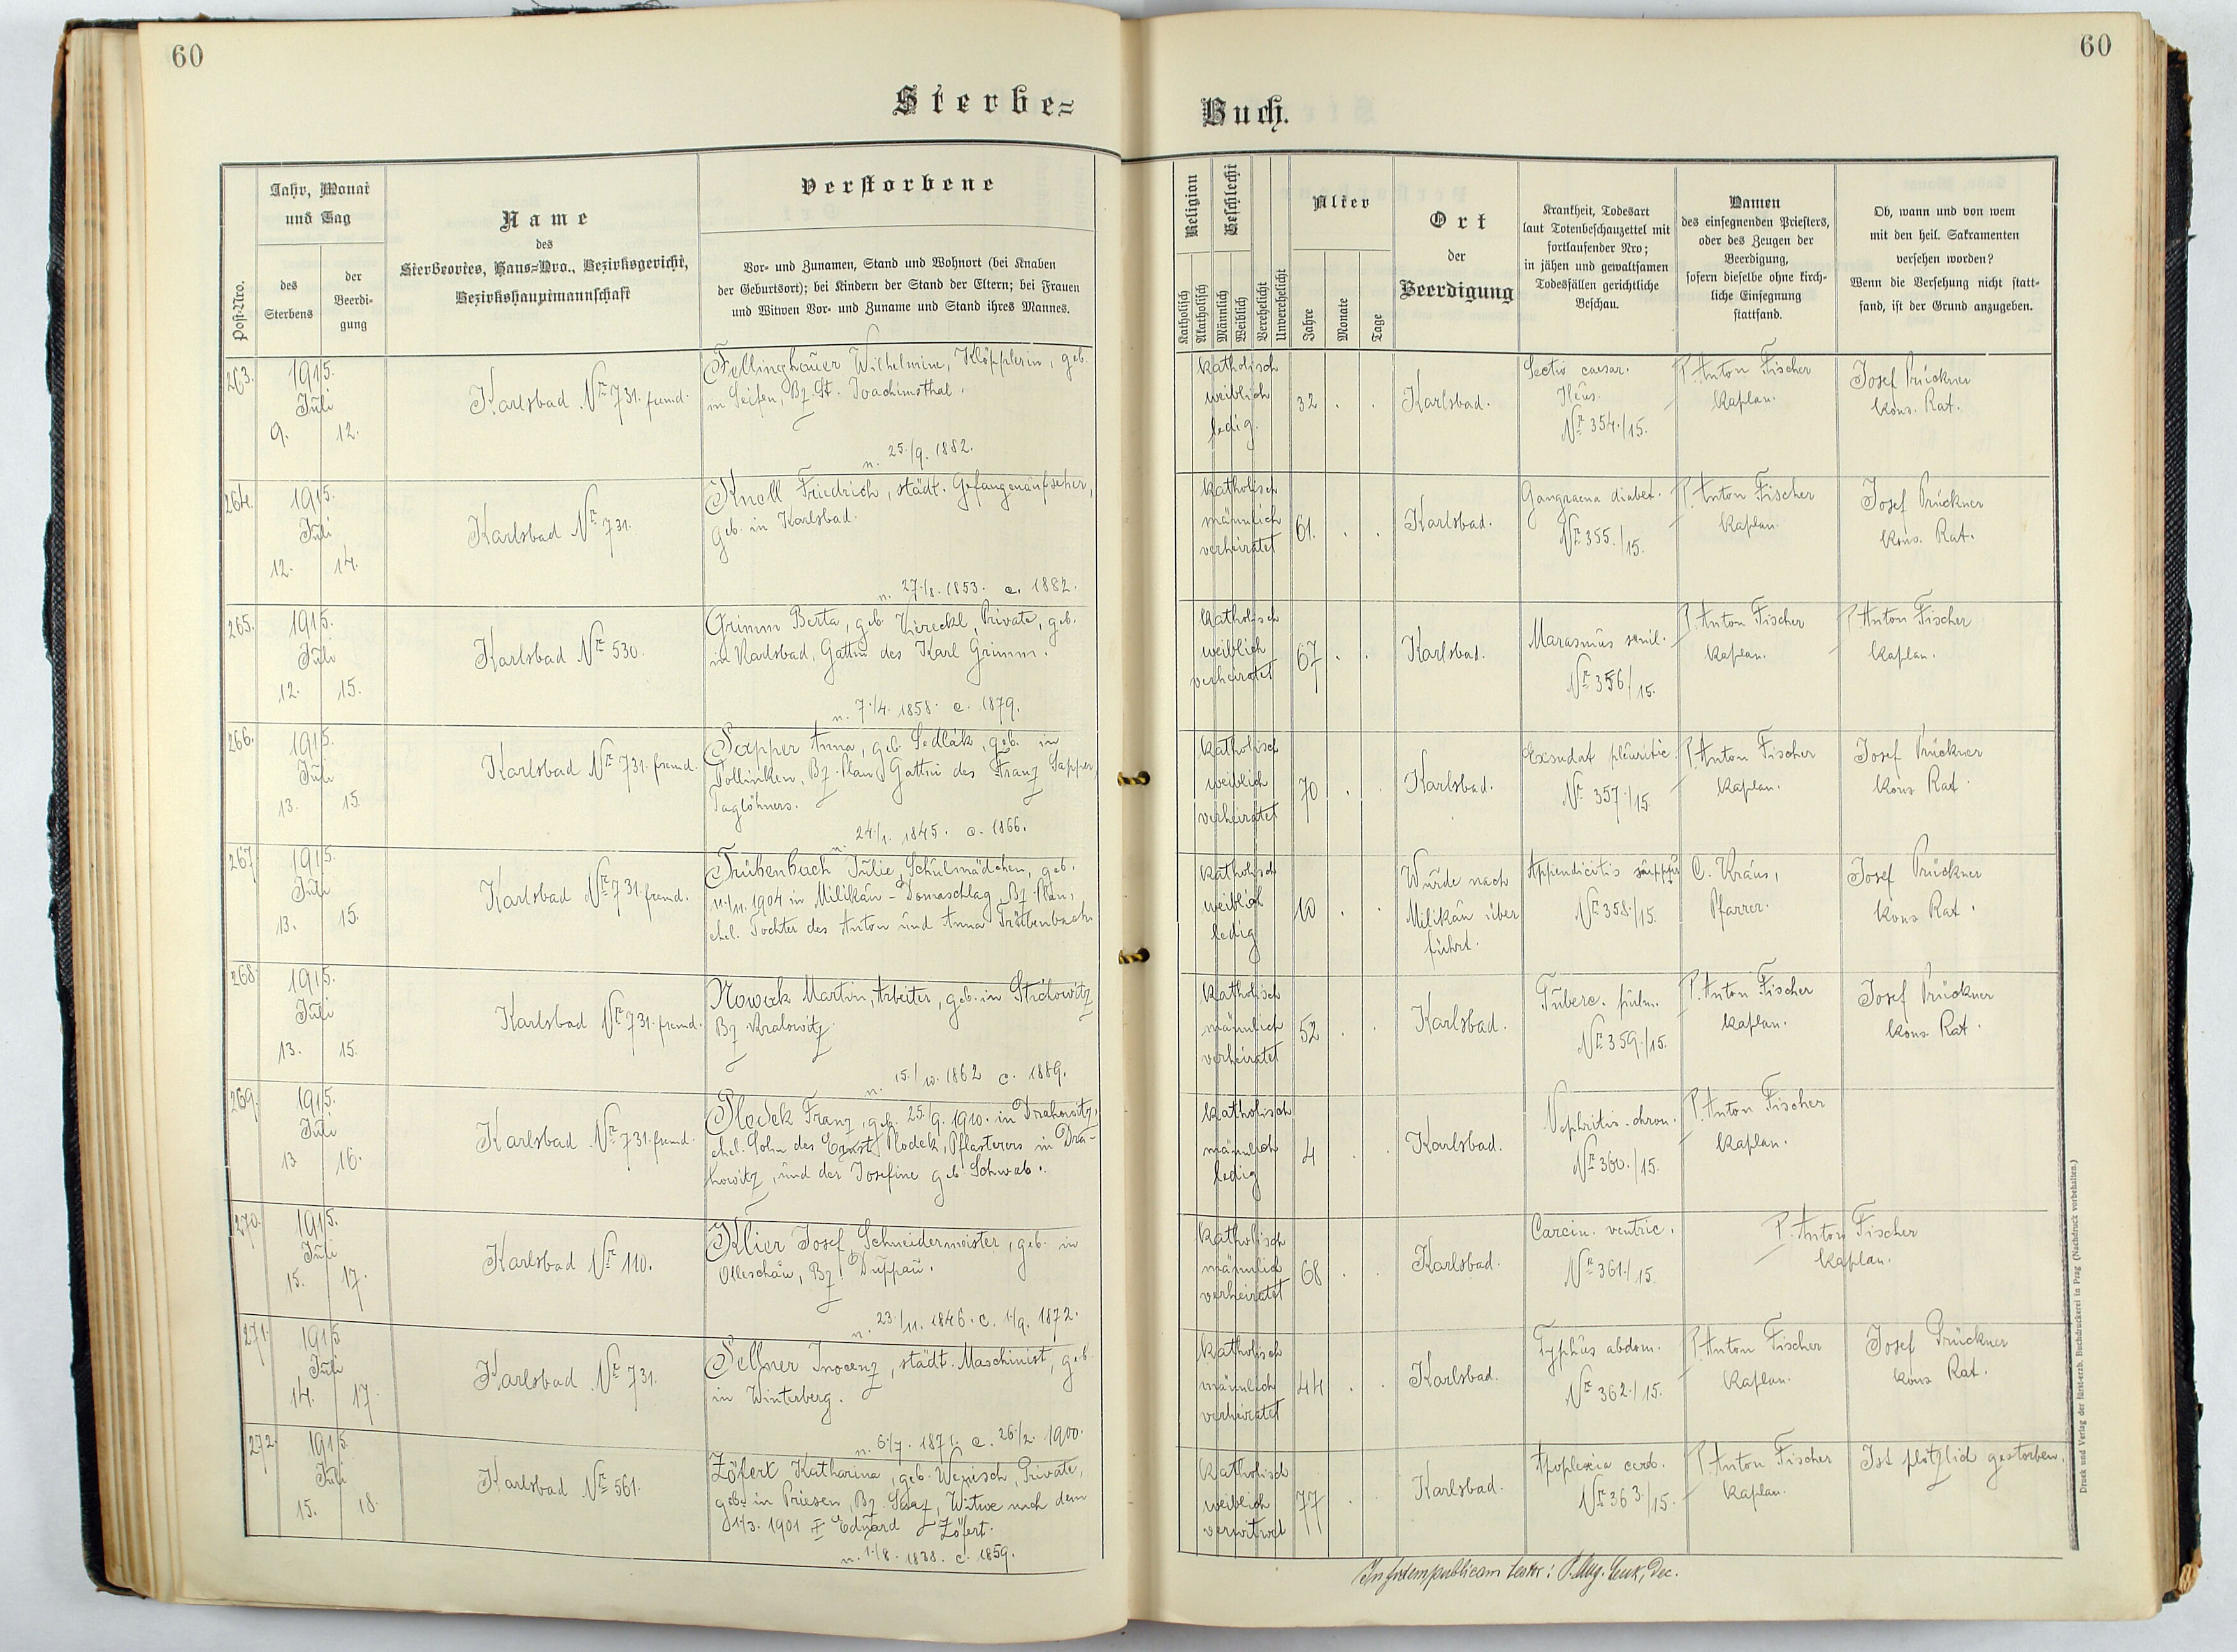 60
60
Sterbe=
Buch.
Post-Nro.
Jahr, Monat
und Tag
des
Sterbens
der
Beerdi-
gung
Name
des
Sterbeortes, Haus=Nro., Bezirksgericht,
Bezirkshauptmannschaft
Verstorbene
Vor- und Zunamen, Stand und Wohnort (bei Knaben
der Geburtsort); bei Kindern der Stand der Eltern; bei Frauen
und Witwen Vor- und Zuname und Stand ihres Mannes.
Religion
Katholisch
Akatholisch
Geschlecht
Männlich
Weiblich
Verehelicht
Unverehelicht
Alter
Jahre
Monate
Tage
Ort
der
Beerdigung
Krankheit, Todesart
laut Totenbeschauzettel mit
fortlaufender Nro;
in jähen und gewaltsamen
Todesfällen gerichtliche
Beschau.
Namen
des einsegnenden Priesters,
oder des Zeugen der
Beerdigung,
sofern dieselbe ohne kirch-
liche Einsegnung
stattfand.
Ob, wann und von wem
mit den heil. Sakramenten
versehen worden?
Wenn die Versehung nicht statt-
fand, ist der Grund anzugeben.
263.
1915.
Juli
9. 12.
Karlsbad Nr 731. fremd.
Fellinghauer Wilhelmine, Klöpplerin, geb.
in Seifen, Bz. St. Joachimsthal.
n. 25./9. 1882.
katholisch
weiblich
ledig.
32 . .
Karlsbad.
Sectio caesar.
Ileus.
Nr 354./15.
P. Anton Fischer
Kaplan.
Josef Prückner
Kons. Rat.
264.
1915.
Juli
12. 14.
Karlsbad Nr 731.
Knoll Friedrich, städt. Gefangenaufseher,
geb. in Karlsbad.
n. 27./8. 1853. c. 1882.
katholisch
männlich
verheiratet
61. . .
Karlsbad.
Gangraena diabet.
Nr 355./15.
P. Anton Fischer
Kaplan.
Josef Prückner
Kons. Rat.
265.
1915.
Juli
12. 15.
Karlsbad Nr 530.
Grimm Berta, geb. Private, geb.
in Karlsbad, Gattin des Karl Grimm.
n. 7./4. 1858. c. 1879.
katholisch
weiblich
verheiratet
67 . .
Karlsbad.
Marasmus senil.
Nr 356/15.
P. Anton Fischer
Kaplan.
P. Anton Fischer
Kaplan.
266.
1915.
Juli
13. 15.
Karlsbad Nr 731. fremd.
Sapper Anna, geb. Sedlak, geb. in
Pollinken, Bz. Plan, Gattin des Franz Sapper,
Taglöhners.
n. 24./1. 1845. c. 1866.
katholisch
weiblich
verheiratet
70 . .
Karlsbad.
Exsudat pleuritic.
Nr 357./15.
P. Anton Fischer
Kaplan.
Josef Prückner
Kons Rat.
267.
1915.
Juli
13. 15.
Karlsbad Nr 731. fremd.
Trübenbach Julie, Schulmädchen, geb.
11./11. 1904 in Milikau - Domaschlag Bz. Plan,
ehel. Tochter des Anton und Anna Trübenbach
katholisch
weiblich
ledig
10 . .
Wurde nach
Milikau über
führt.
Appendicitis suppur
Nr 358./15.
C. Kraus,
Pfarrer.
Josef Prückner
Kons Rat.
268.
1915.
Juli
13. 15.
Karlsbad Nr 731. fremd.
Nowak Martin, Arbeiter, geb. in
Bz Kralowitz.
n. 15./10. 1862 c. 1889.
katholisch
männlich
verheiratet
52 . .
Karlsbad.
Tuberc. pulm.
Nr 359./15.
P. Anton Fischer
Kaplan.
Josef Prückner
Kons Rat.
269.
1915.
Juli
13 16.
Karlsbad Nr 731. fremd.
Plodek Franz, geb. 25./9. 1910. in Drahowitz,
ehel. Sohn des Ernst Plodek, Pflasterers in Dra-
howitz, und der Josefine geb. Schwab.
katholisch
männlich
ledig
4 . .
Karlsbad.
Nephritis chron.
Nr 360./15.
P. Anton Fischer
Kaplan.
270.
1915.
Juli
15. 17.
Karlsbad Nr 110.
Klier Josef, Schneidermeister, geb. in
Olleschau, Bz. Duppau.
n. 23./11. 1846. c. 1./9. 1872.
katholisch
männlich
verheiratet
68 . .
Karlsbad.
Carcin. ventric.
Nr 361./15.
P. Anton Fischer
Kaplan.
271.
1915
Juli
14. 17.
Karlsbad Nr 731.
Sellner Inocenz, städt. Maschinist, geb.
in Winterberg.
n. 6./7. 1871. c. 26./2. 1900.
katholisch
männlich
verheiratet
44 . .
Karlsbad.
Typhus abdom.
Nr 362./15.
P. Anton Fischer
Kaplan.
Josef Prückner
Kons Rat.
272.
1915.
Juli
15. 18.
Karlsbad Nr 561.
Zöfert Katharina, geb. Wenisch, Private,
geb. in Priesen, Bz. Saaz, Witwe nach dem
1./3. 1901 † Eduard Zöfert.
n. 1./8. 1838. c. 1859.
katholisch
weiblich
verwitwet
77 . .
Karlsbad.
Apoplexia cerb.
Nr 363./15.
P. Anton Fischer
Kaplan.
Ist plötzlich gestorben.
In fidem publicam testor: P. Aug. Dec.
Druck und Verlag der fürst-erzb. Buchdruckerei in Prag (Nachdruck vorbehalten.)